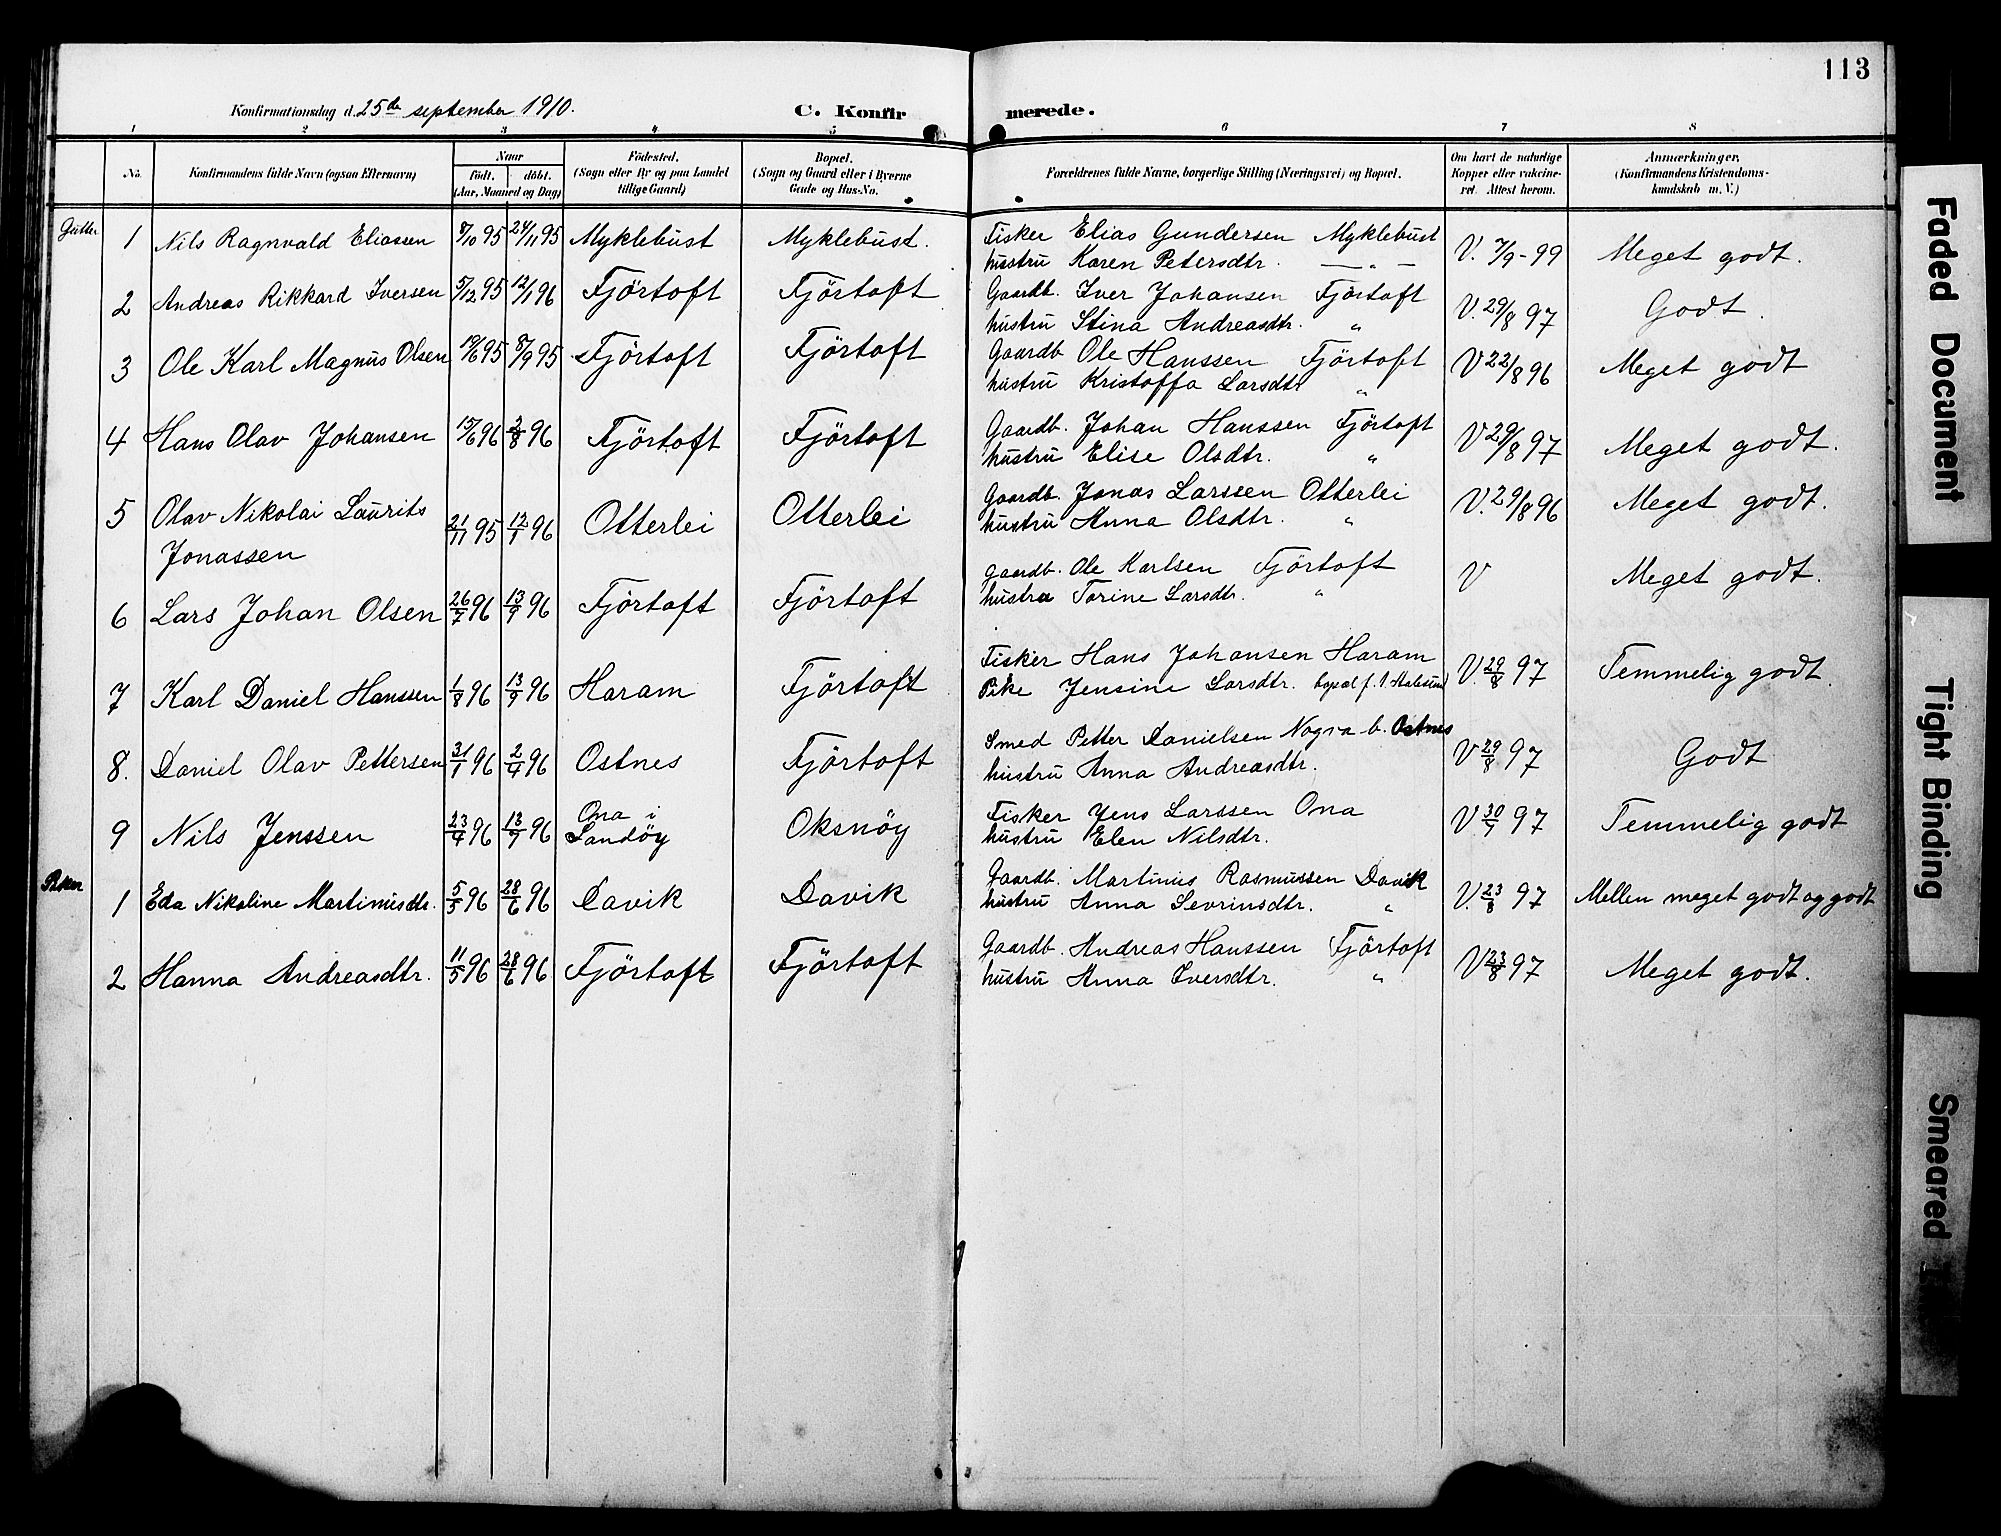 113
Konfirmationsdag d. 25de september 1910.
C. Konfirmerede.
1 2 3 4 5 6 7 8
No.
Konfirmandens fulde Navn (ogsaa Efternavn)
Naar
født. døbt.
(Aar, Maaned og Dag)
Fødested.
(Sogn eller By og paa Landet
tillige Gaard)
Bopæl.
(Sogn og Gaard eller i Byerne
Gade og Hus-No.
Forældrenes fulde Navne, borgerlige Stilling (Næringsvei) og Bopæl.
Om havt de naturlige
Kopper eller vakcine-
ret. Attest herom.
Anmærkninger.
(Konfirmandens Kristendoms-
kundskab m. V.)
Gutter
1 Nils Ragnvald Eliasen 8/10 95 24/11 95 Myklebust Myklebust. Fisker Elias Gundersen Myklebust V. 7/9-99 Meget godt.
hustru Karen Petersdtr. — „ —
2 Andreas Rikkard Iversen 5/12 95 12/1 96 Fjörtoft Fjörtoft Gaardb. Iver Johansen Fjörtoft V. 29/8 97 Godt.
hustru Stina Andreasdtr. „
3 Ole Karl Magnus Olsen 19/6 95 8/9 95 Fjörtoft Fjörtoft Gaardb Ole Hanssen Fjörtoft V 22/8 96 Meget godt
hustru Kristoffa Larsdtr „
4 Hans Olav Johansen 15/6 96 2/8 96 Fjörtoft Fjörtoft Gaardb. Johan Hanssen Fjörtoft V 29/8 97 Meget godt.
hustru Elise Olsdtr. „
5 Olav Nikolai Laurits 21/11 95 12/1 96 Otterlei Otterlei Gaardb. Jonas Larssen Otterlei V. 29/8 96 Meget godt.
Jonassen hustru Anna Olsdtr. „
6 Lars Johan Olsen 26/7 96 13/9 96 Fjörtoft Fjörtoft gaardb. Ole Karlsen Fjörtoft V Meget godt.
hustru Torine Larsdtr. „
7 Karl Daniel Hanssen 1/8 96 13/9 96 Haram Fjörtoft Fisker Hans Johansen Haram V. 29/8 97 Temmelig godt.
Pike Jensine Larsdtr. bopæl f. t. Aalesund
8. Daniel Olav Pettersen 31/1 96 2/4 96 Ostnes Fjörtoft Smed Petter Danielsen Nogva b. Ostnes V 29/8 97 Godt
hustru Anna Andreasdtr.
9 Nils Jenssen 23/4 96 13/7 96 Ona i Sandöy Oksnöy Fisker Jens Larssen Ona V. 30/7 97 Temmelig godt
hustru Elen Nilsdtr.
Piker
1 Eda Nikoline Martinusdtr. 5/5 96 28/6 96 Davik Davik Gaardb. Martinus Rasmussen Davik V. 23/8 97 Mellem meget godt og godt
hustru Anna Sevrinsdtr. „
2 Hanna Andreasdtr. 11/5 96 28/6 96 Fjörtoft Fjörtoft Gaardb. Andreas Hanssen Fjörtoft V 23/8 97 Meget godt.
hustru Anna Iversdtr. „
Faded Document
Tight Binding
Smeared